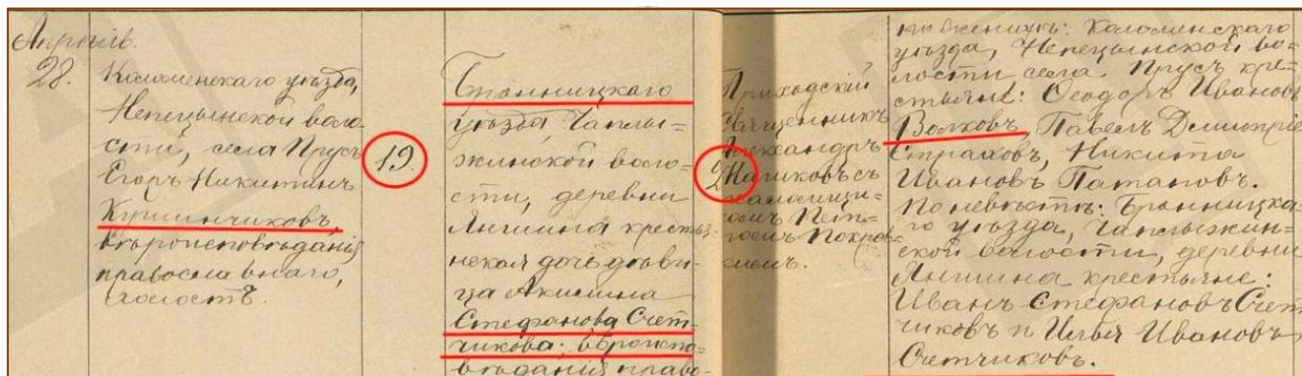 Апрѣль.
28.
Коломенскаго уѣзда,
Непецынской воло-
сти, села Прусъ
Егоръ Никитинъ
Кувшинчиковъ,
вѣроисповѣданія
православнаго,
холостъ.
19.
Бронницкаго
уѣзда, Чаплы-
жинской воло-
сти, деревни
Аншина крестья-
нская дочь дѣви-
ца Акилина
Стефанова Счет-
чикова; вѣроиспо-
вѣданія право-
Приходскій
священникъ
Александръ
съ
псаломщи-
комъ Пет-
ромъ Покров-
скимъ.
по женихѣ: Коломенскаго
уѣзда, Непецынской во-
лости села Прусъ кре-
стьяне: Ѳеодоръ Ивановъ
Волковъ, Павелъ Димитріе
Страховъ, Никита
Ивановъ Патановъ.
По невѣстѣ: Бронницка-
го уѣзда, Чаплыжин-
ской волости, деревни
Аншина крестьяне:
Иванъ Стефановъ Счет
чиковъ и Илья Ивановъ
Счетчиковъ.